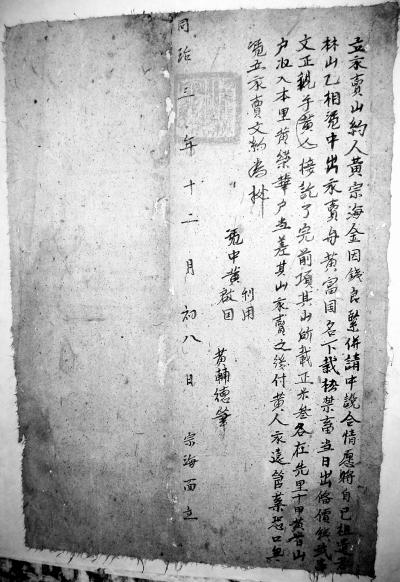 立永賣山約人黃宗海金因錢良緊併請中說合情愿將自己祖遺
林山乙相憑中出永賣与黃富国名下栽杉禁畜当日出俻價銭弍
文正親手黃人接訖了完前項其山所載正米叁各在先里十甲黃音山
户收入本里黃榮華户当差其山永賣之後付黃人永遠管業恐口無
憑立永賣文約為㨿
憑中黃 利用 啟因
黃輔德筆
同治三年十二月初八日 宗海面立